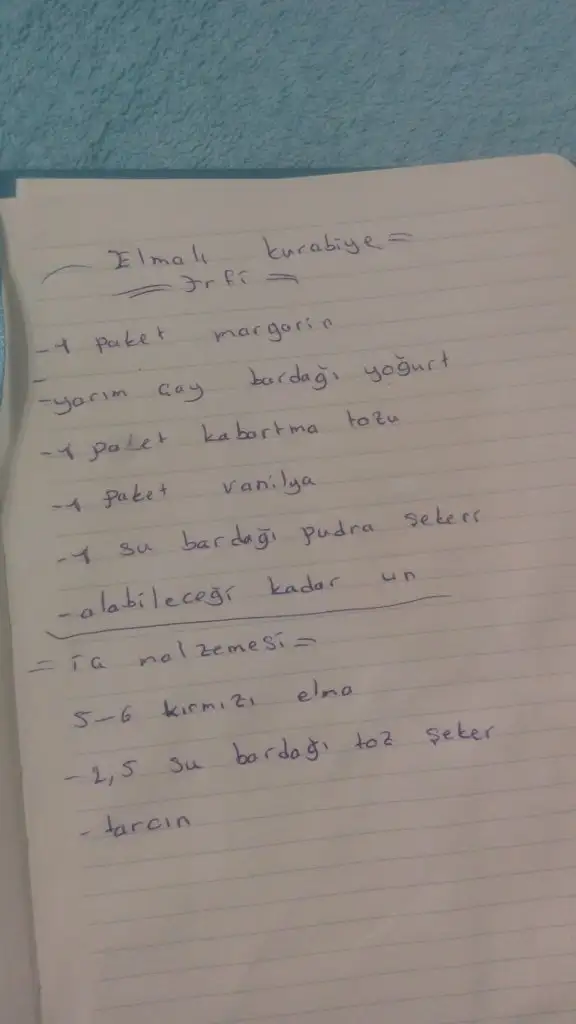 Elmalı kurabiye =
= Trfi =
- 1 paket margarin
- yarım çay bardağı yoğurt
- 1 paket kabartma tozu
- 1 paket vanilya
- 1 su bardağı pudra şekeri
- alabileceği kadar un
= iç malzemesi =
5-6 kırmızı elma
- 1,5 su bardağı toz şeker
- tarcın